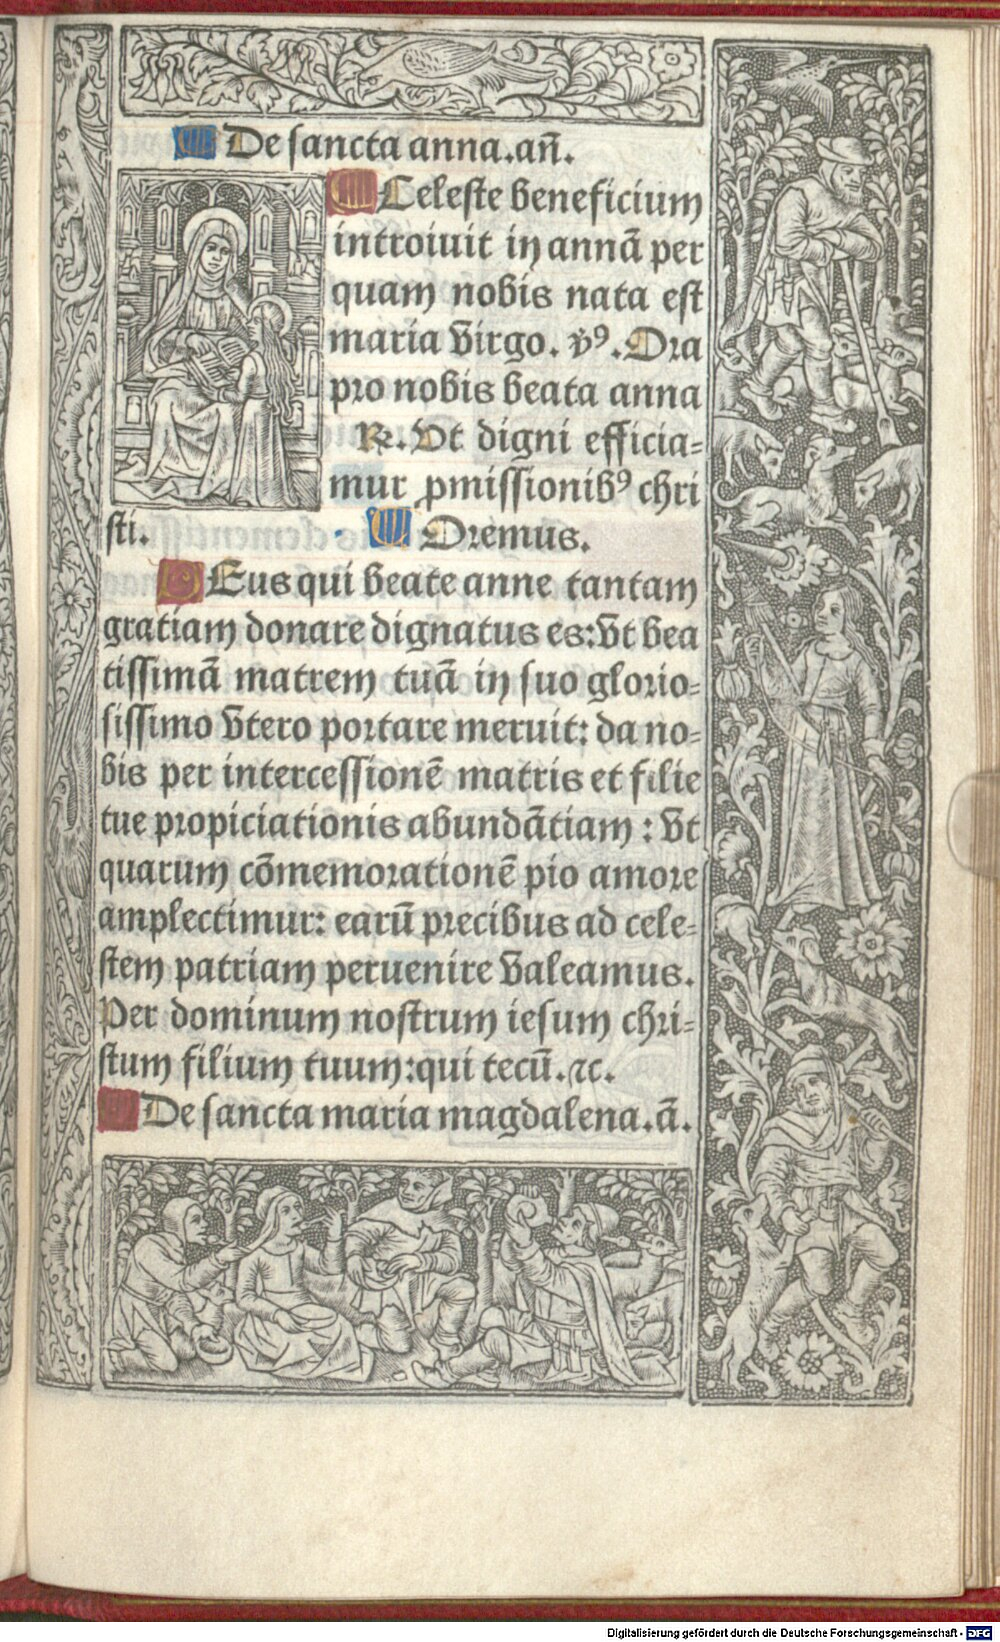 De sancta anna. an̄.
Celeste beneficium
introiuit in annā per
quam nobis nata est
maria virgo. v̄ꝰ. Ora
pro nobis beata anna
℞. Ut digni efficia⸗
mur ꝓmissionibꝰ chri
sti. Oremus.
DEus qui beate anne tantam
gratiam donare dignatus es: vt bea
tissimā matrem tuā in suo glorio⸗
sissimo vtero portare meruit: da no⸗
bis per intercessionē matris et filie
tue propiciationis abundātiam: vt
quarum cōmemorationē pio amore
amplectimur: earū precibus ad cele⸗
stem patriam peruenire valeamus.
Per dominum nostrum iesum chri⸗
stum filium tuum: qui tecū. ⁊c.
De sancta maria magdalena. ā.
Digitalisierung gefördert durch die Deutsche Forschungsgemeinschaft - DFG